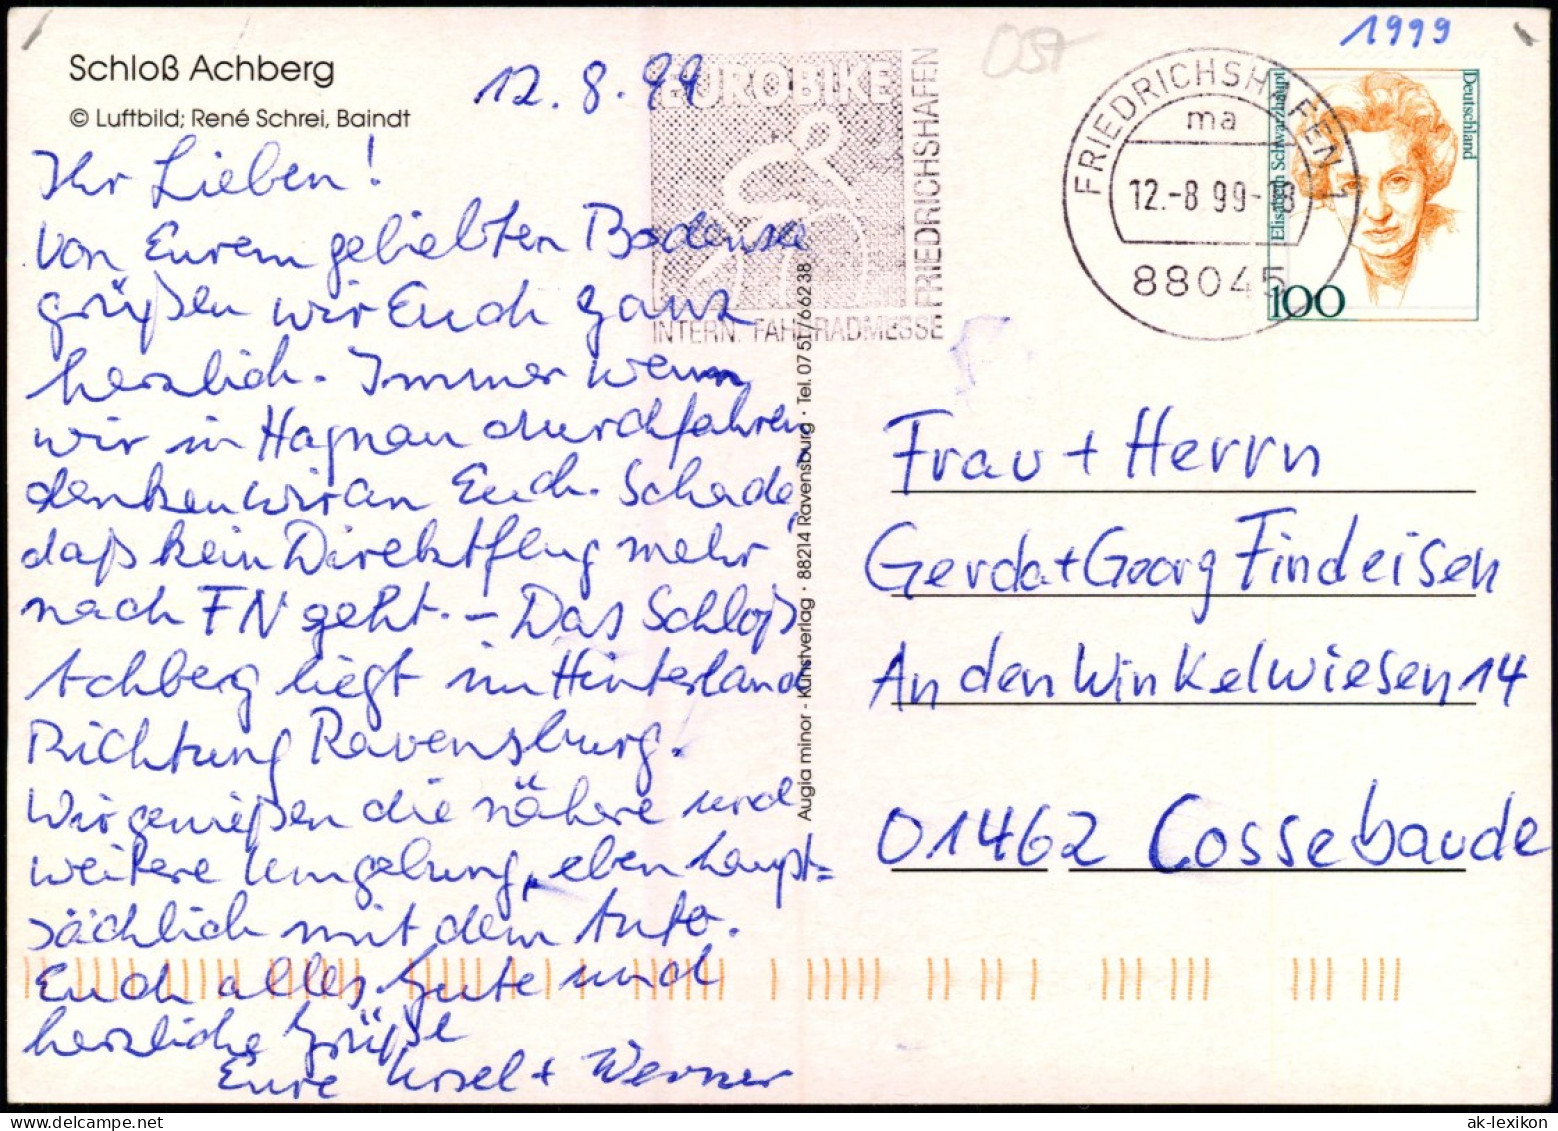 1999
Schloß Achberg
© Luftbild; René Schrei, Baindt
12.8.99
EUROBIKE
FRIEDRICHSHAFEN
INTERN. FAHRRADMESSE
FRIEDRICHSHAFEN 1
ma
12.-8 99-18
88045
Deutschland
Elisabeth Schwarzhaupt
100
Ihr Lieben!
Von Eurem geliebten Bodensee
grüßen wir Euch ganz
herzlich. Immer wenn
wir in Hagnau durchfahren
denken wir an Euch. Schade,
daß kein Direktflug mehr
nach FN geht. – Das Schloß
Achberg liegt im Hinterland
Richtung Ravensburg.
Wir genießen die nähere und
weitere Umgebung, eben haupt=
sächlich mit dem Auto.
Euch alles Gute und
herzliche Grüße
Eure Ursel + Werner
Augia minor - Kunstverlag · 88214 Ravensburg · Tel. 07 51/6 62 38
Frau + Herrn
Gerda + Georg Findeisen
An den Winkelwiesen 14
01462 Cossebaude
ak-lexikon